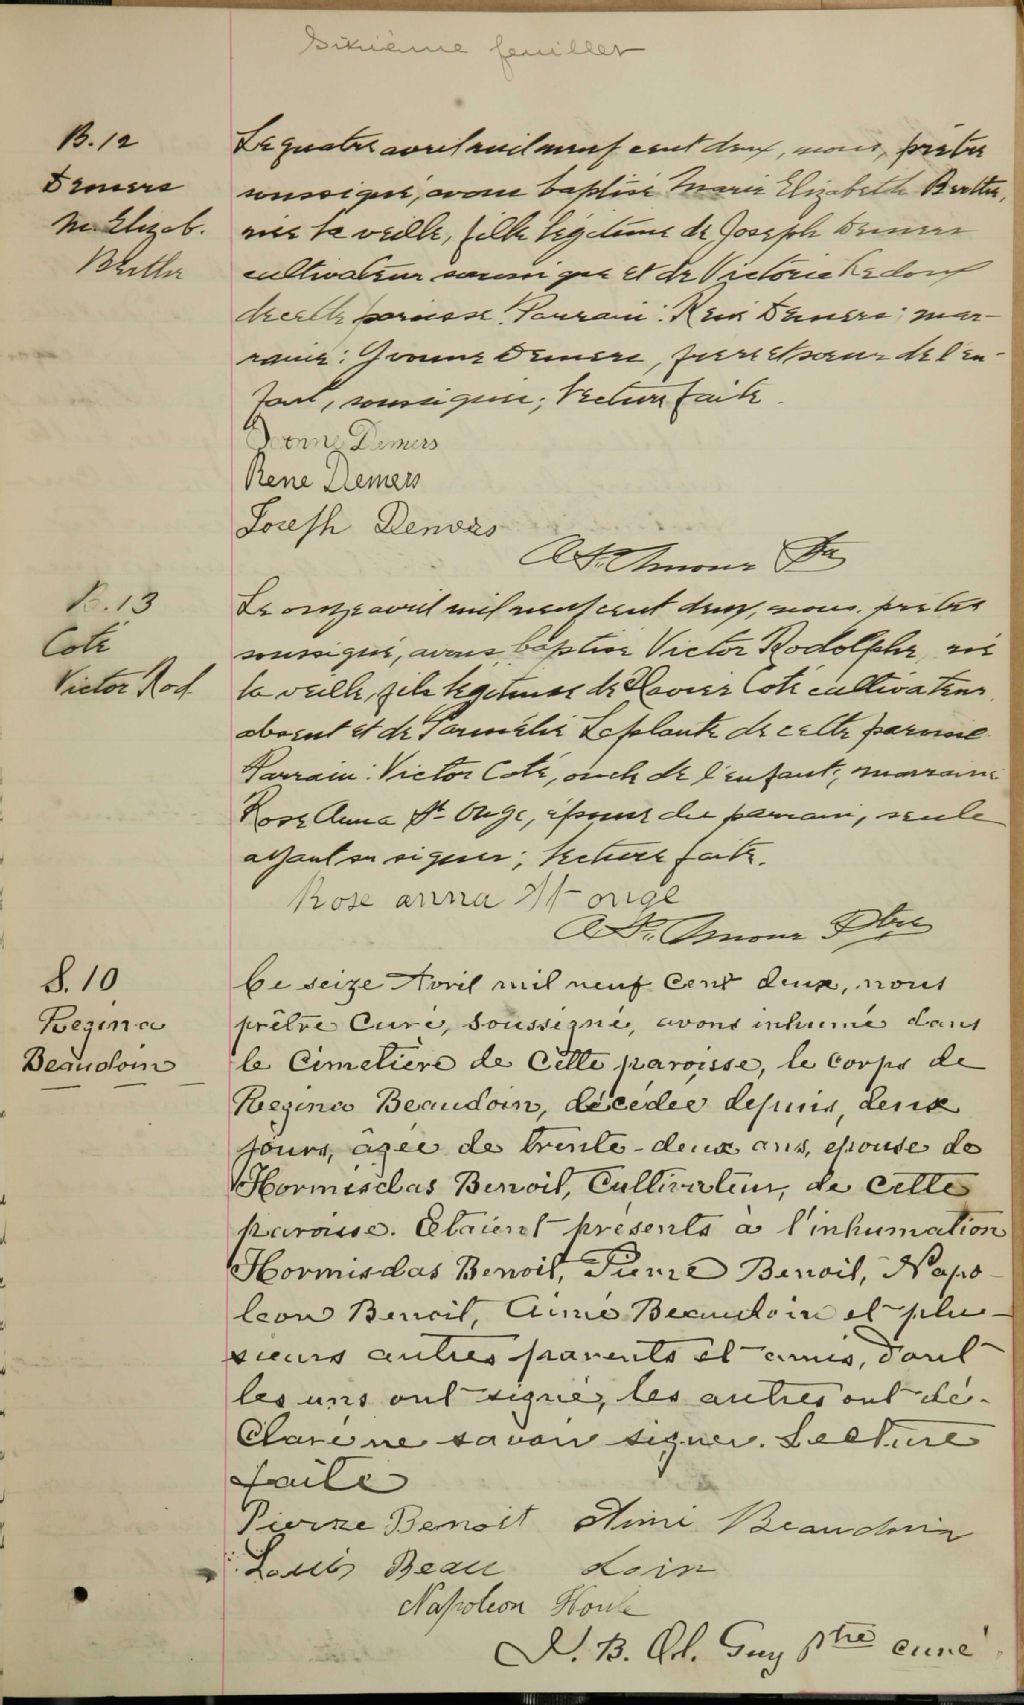 Sixième feuillet
B. 12
Demers
M. Elizab.
Bertha
Le quatre avril mil neuf cent deux, nous, prêtre
soussigné, avons baptisé Marie Elizabeth Bertha,
née la veille, fille légitime de Joseph Demers
cultivateur soussigné et de Victorie Ledoux
de cette paroisse. Parrain : René Demers ; mar-
raine : Yvonne Demers, frère et soeur de l'en-
fant, soussignés ; lecture faite.
Yvonne Demers
Rene Demers
Joseph Demers
A St. Amour Ptr
B. 13
Coté
Victor Rod.
Le onze avril mil neuf cent deux, nous, prêtre
soussigné, avons baptisé Victor Rodolphe, né
la veille, fils légitime de Xavier Coté cultivateur
absent et de Parmélie Laplante de cette paroisse
Parrain : Victor Coté, oncle de l'enfant ; marraine
Rose Anna St. Onge, épouse du parrain, seule
ayant su signer ; lecture faite.
Rose anna St onge
A St. Amour Ptre
S. 10
Regina
Beaudoin
Ce seize Avril mil neuf Cent deux, nous
prêtre Curé, Soussigné, avons inhumé dans
le Cimetière de Cette paroisse, le corps de
Regina Beaudoin, décédée depuis, deux
jours, âgée de trente-deux ans, epouse de
Hormisdas Benoit, Cultivateur, de Cette
paroisse. Etaient présents à l'inhumation
Hormisdas Benoit, Pierre Benoit, Napo-
leon Benoit, Aimé Beaudoin et plu-
sieurs autres parents et amis, dont
les uns ont signé, les autres ont dé-
Claré ne savoir signer. Lecture
faite
Pierre Benoit Aimé Beaudoin
Louis Beau doin
Napoleon Houle
J. B. Ol. Guy Ptre curé